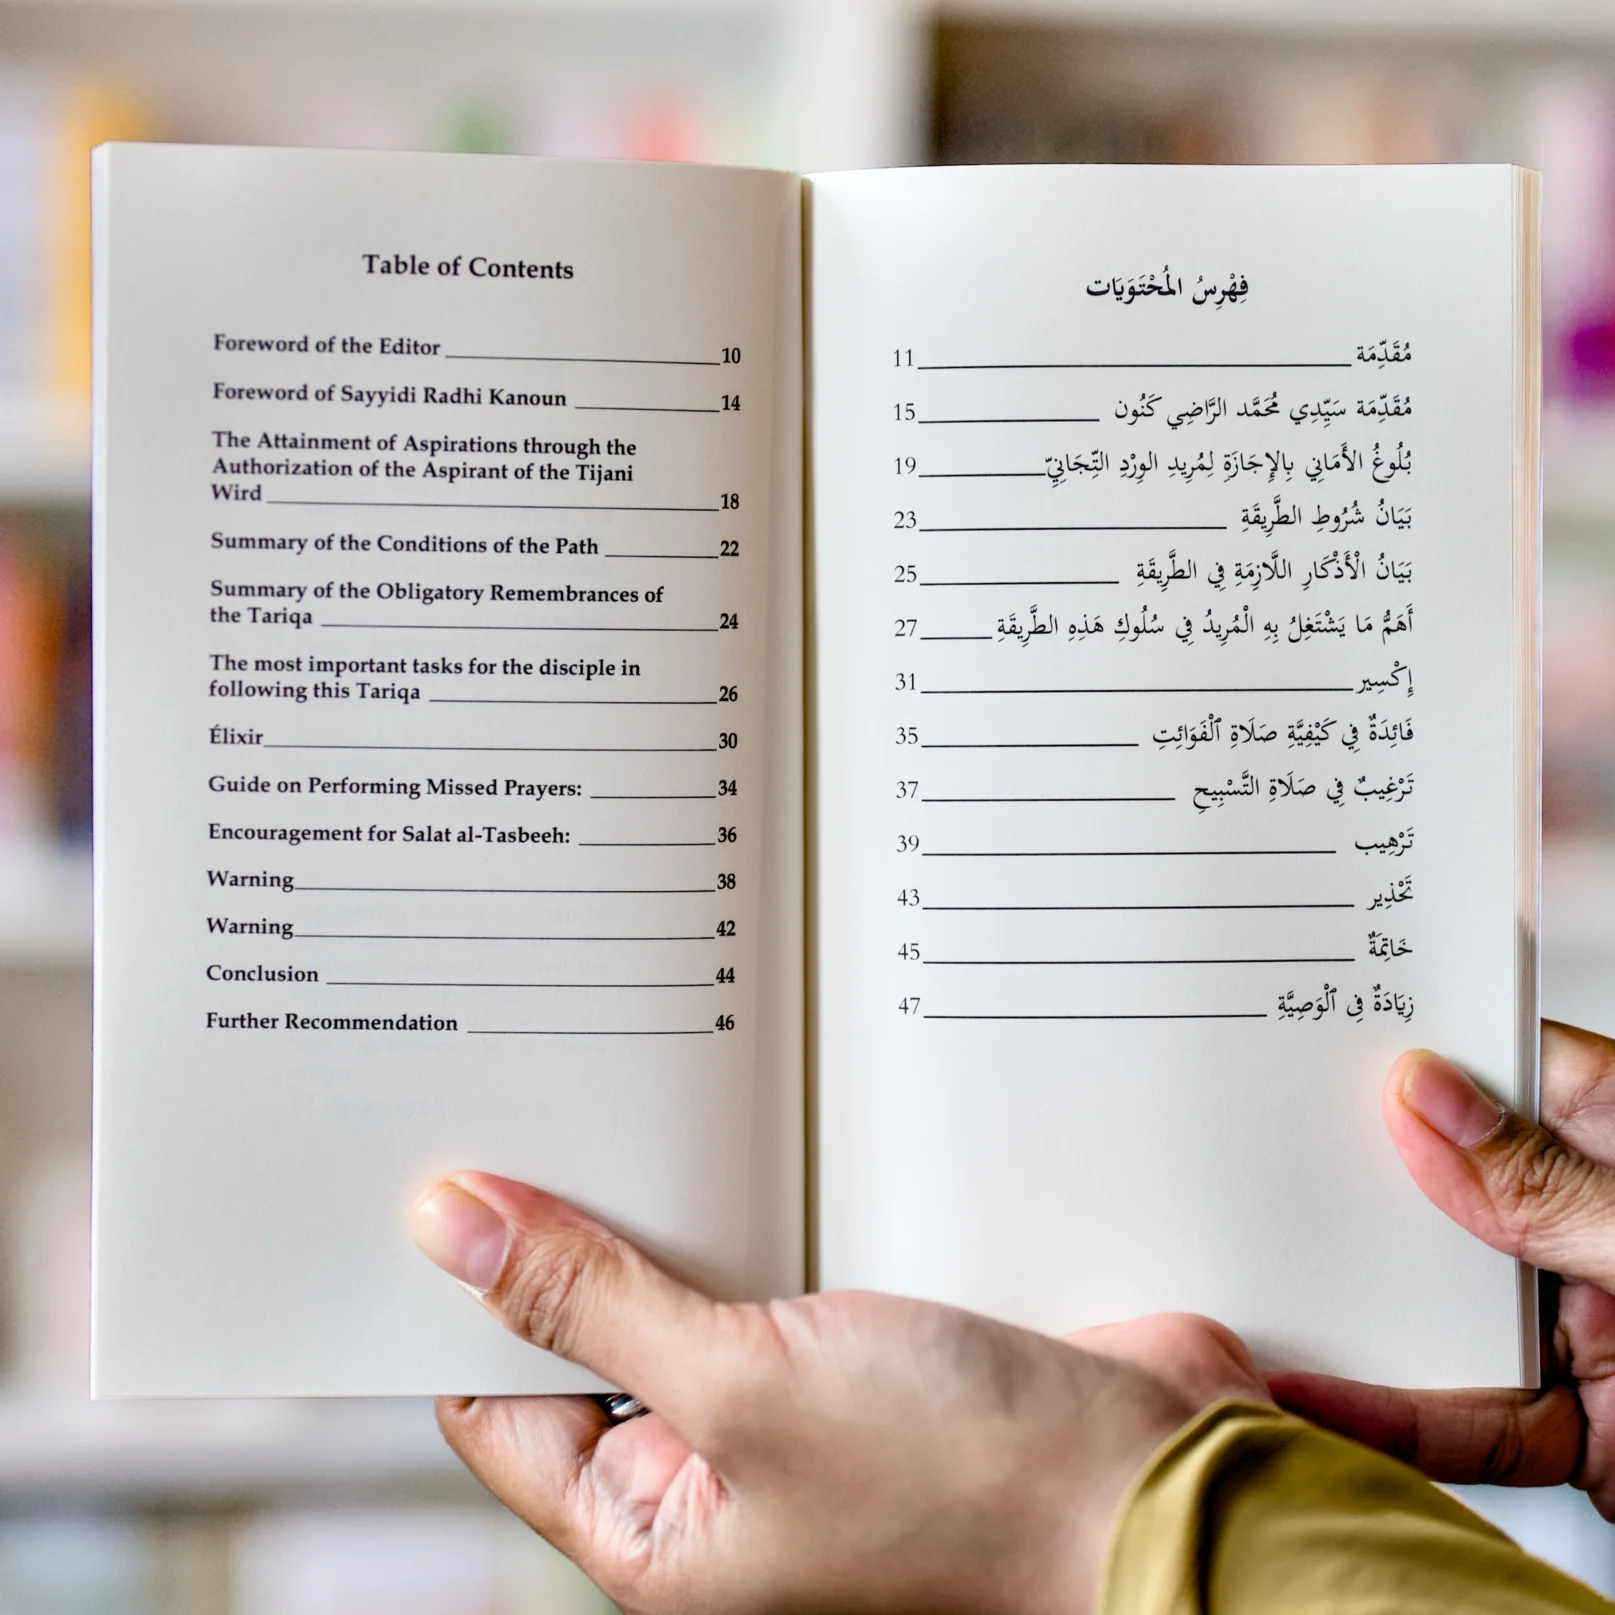 Table of Contents
Foreword of the Editor 10
Foreword of Sayyidi Radhi Kanoun 14
The Attainment of Aspirations through the
Authorization of the Aspirant of the Tijani
Wird 18
Summary of the Conditions of the Path 22
Summary of the Obligatory Remembrances of
the Tariqa 24
The most important tasks for the disciple in
following this Tariqa 26
Élixir 30
Guide on Performing Missed Prayers: 34
Encouragement for Salat al-Tasbeeh: 36
Warning 38
Warning 42
Conclusion 44
Further Recommendation 46
فِهْرِسُ المُحْتَوَيَات
مُقَدِّمَة 11
مُقَدِّمَة سَيِّدِي مُحَمَّد الرَّاضِي كَنُون 15
بُلُوغُ الأَمَانِي بِالإِجَازَةِ لِمُرِيدِ الوِرْدِ التِّجَانِيِّ 19
بَيَانُ شُرُوطِ الطَّرِيقَةِ 23
بَيَانُ الْأَذْكَارِ اللَّازِمَةِ فِي الطَّرِيقَةِ 25
أَهَمُّ مَا يَشْتَغِلُ بِهِ الْمُرِيدُ فِي سُلُوكِ هَذِهِ الطَّرِيقَةِ 27
إِكْسِير 31
فَائِدَةٌ فِي كَيْفِيَّةِ صَلَاةِ ٱلْفَوَائِتِ 35
تَرْغِيبٌ فِي صَلَاةِ التَّسْبِيحِ 37
تَرْهِيب 39
تَحْذِير 43
خَاتِمَةٌ 45
زِيَادَةٌ فِى ٱلْوَصِيَّةِ 47